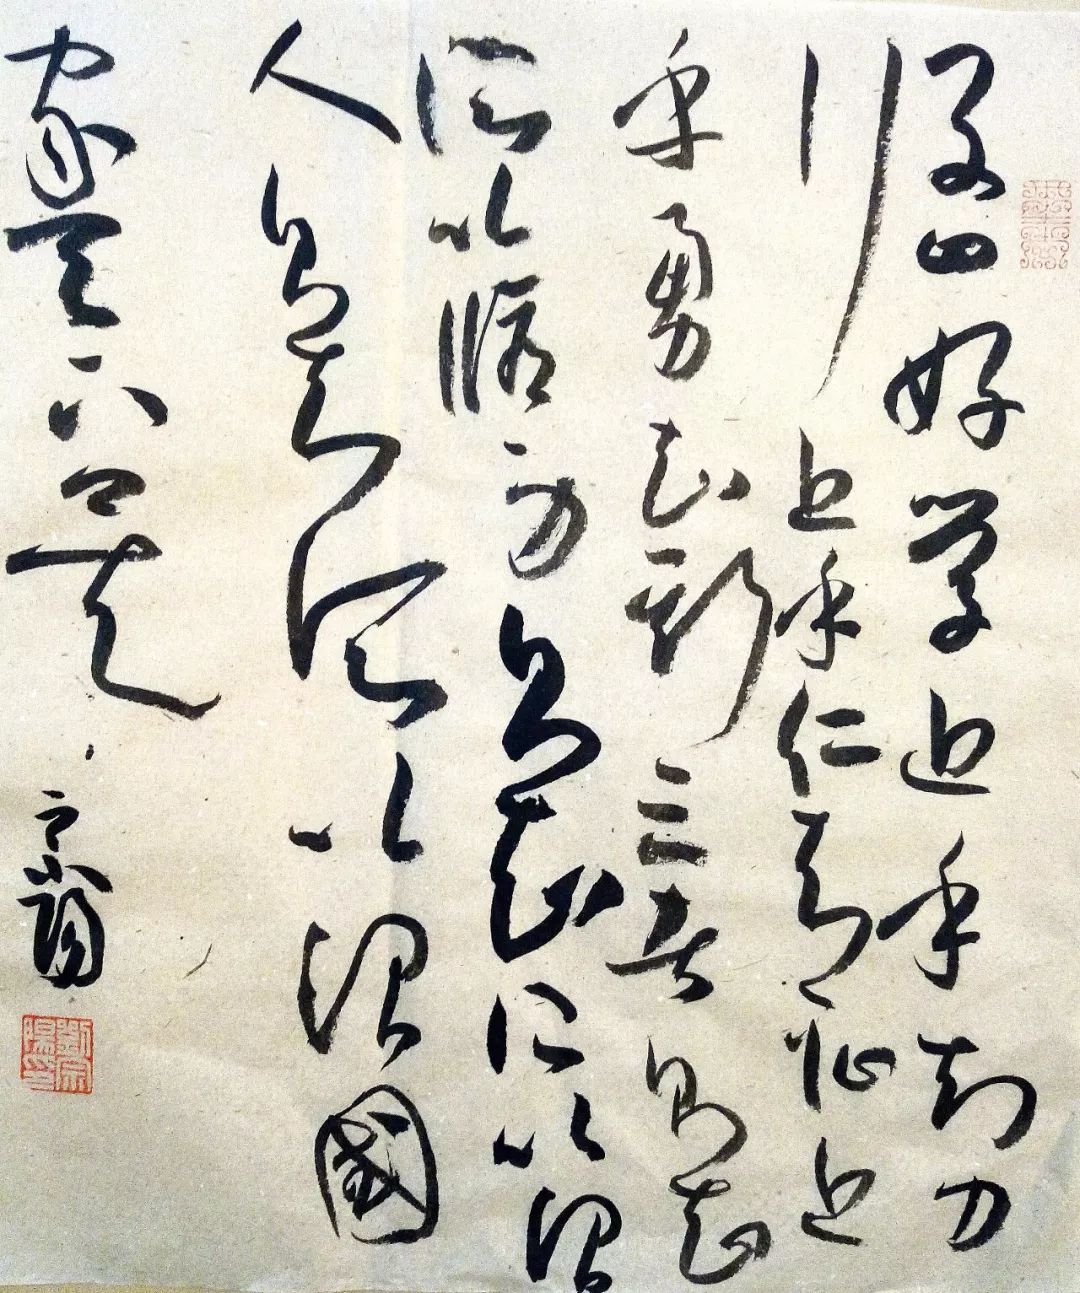 曰好學近乎知力
行近乎仁知恥近
乎勇知斯三者則知
所以脩身則知所以治
人則知所以治國
家天下矣
宗陽
劉宗陽印